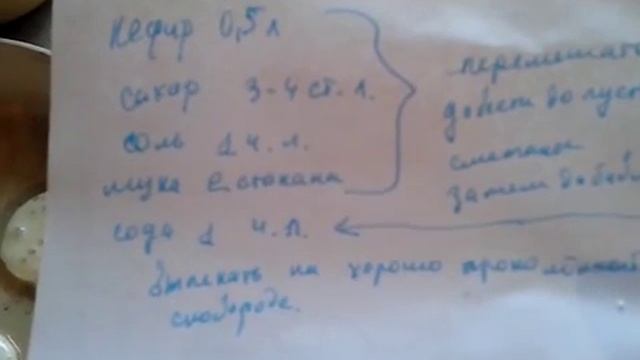 Кефир 0,5 л
сахар 3-4 ст. л.
соль 1 ч. л.
мука 2 стакана
перемешать
довести до густ
сметаны
затем добав
сода 1 ч. л.
Выпекать на хорошо прокалённой
сковороде.